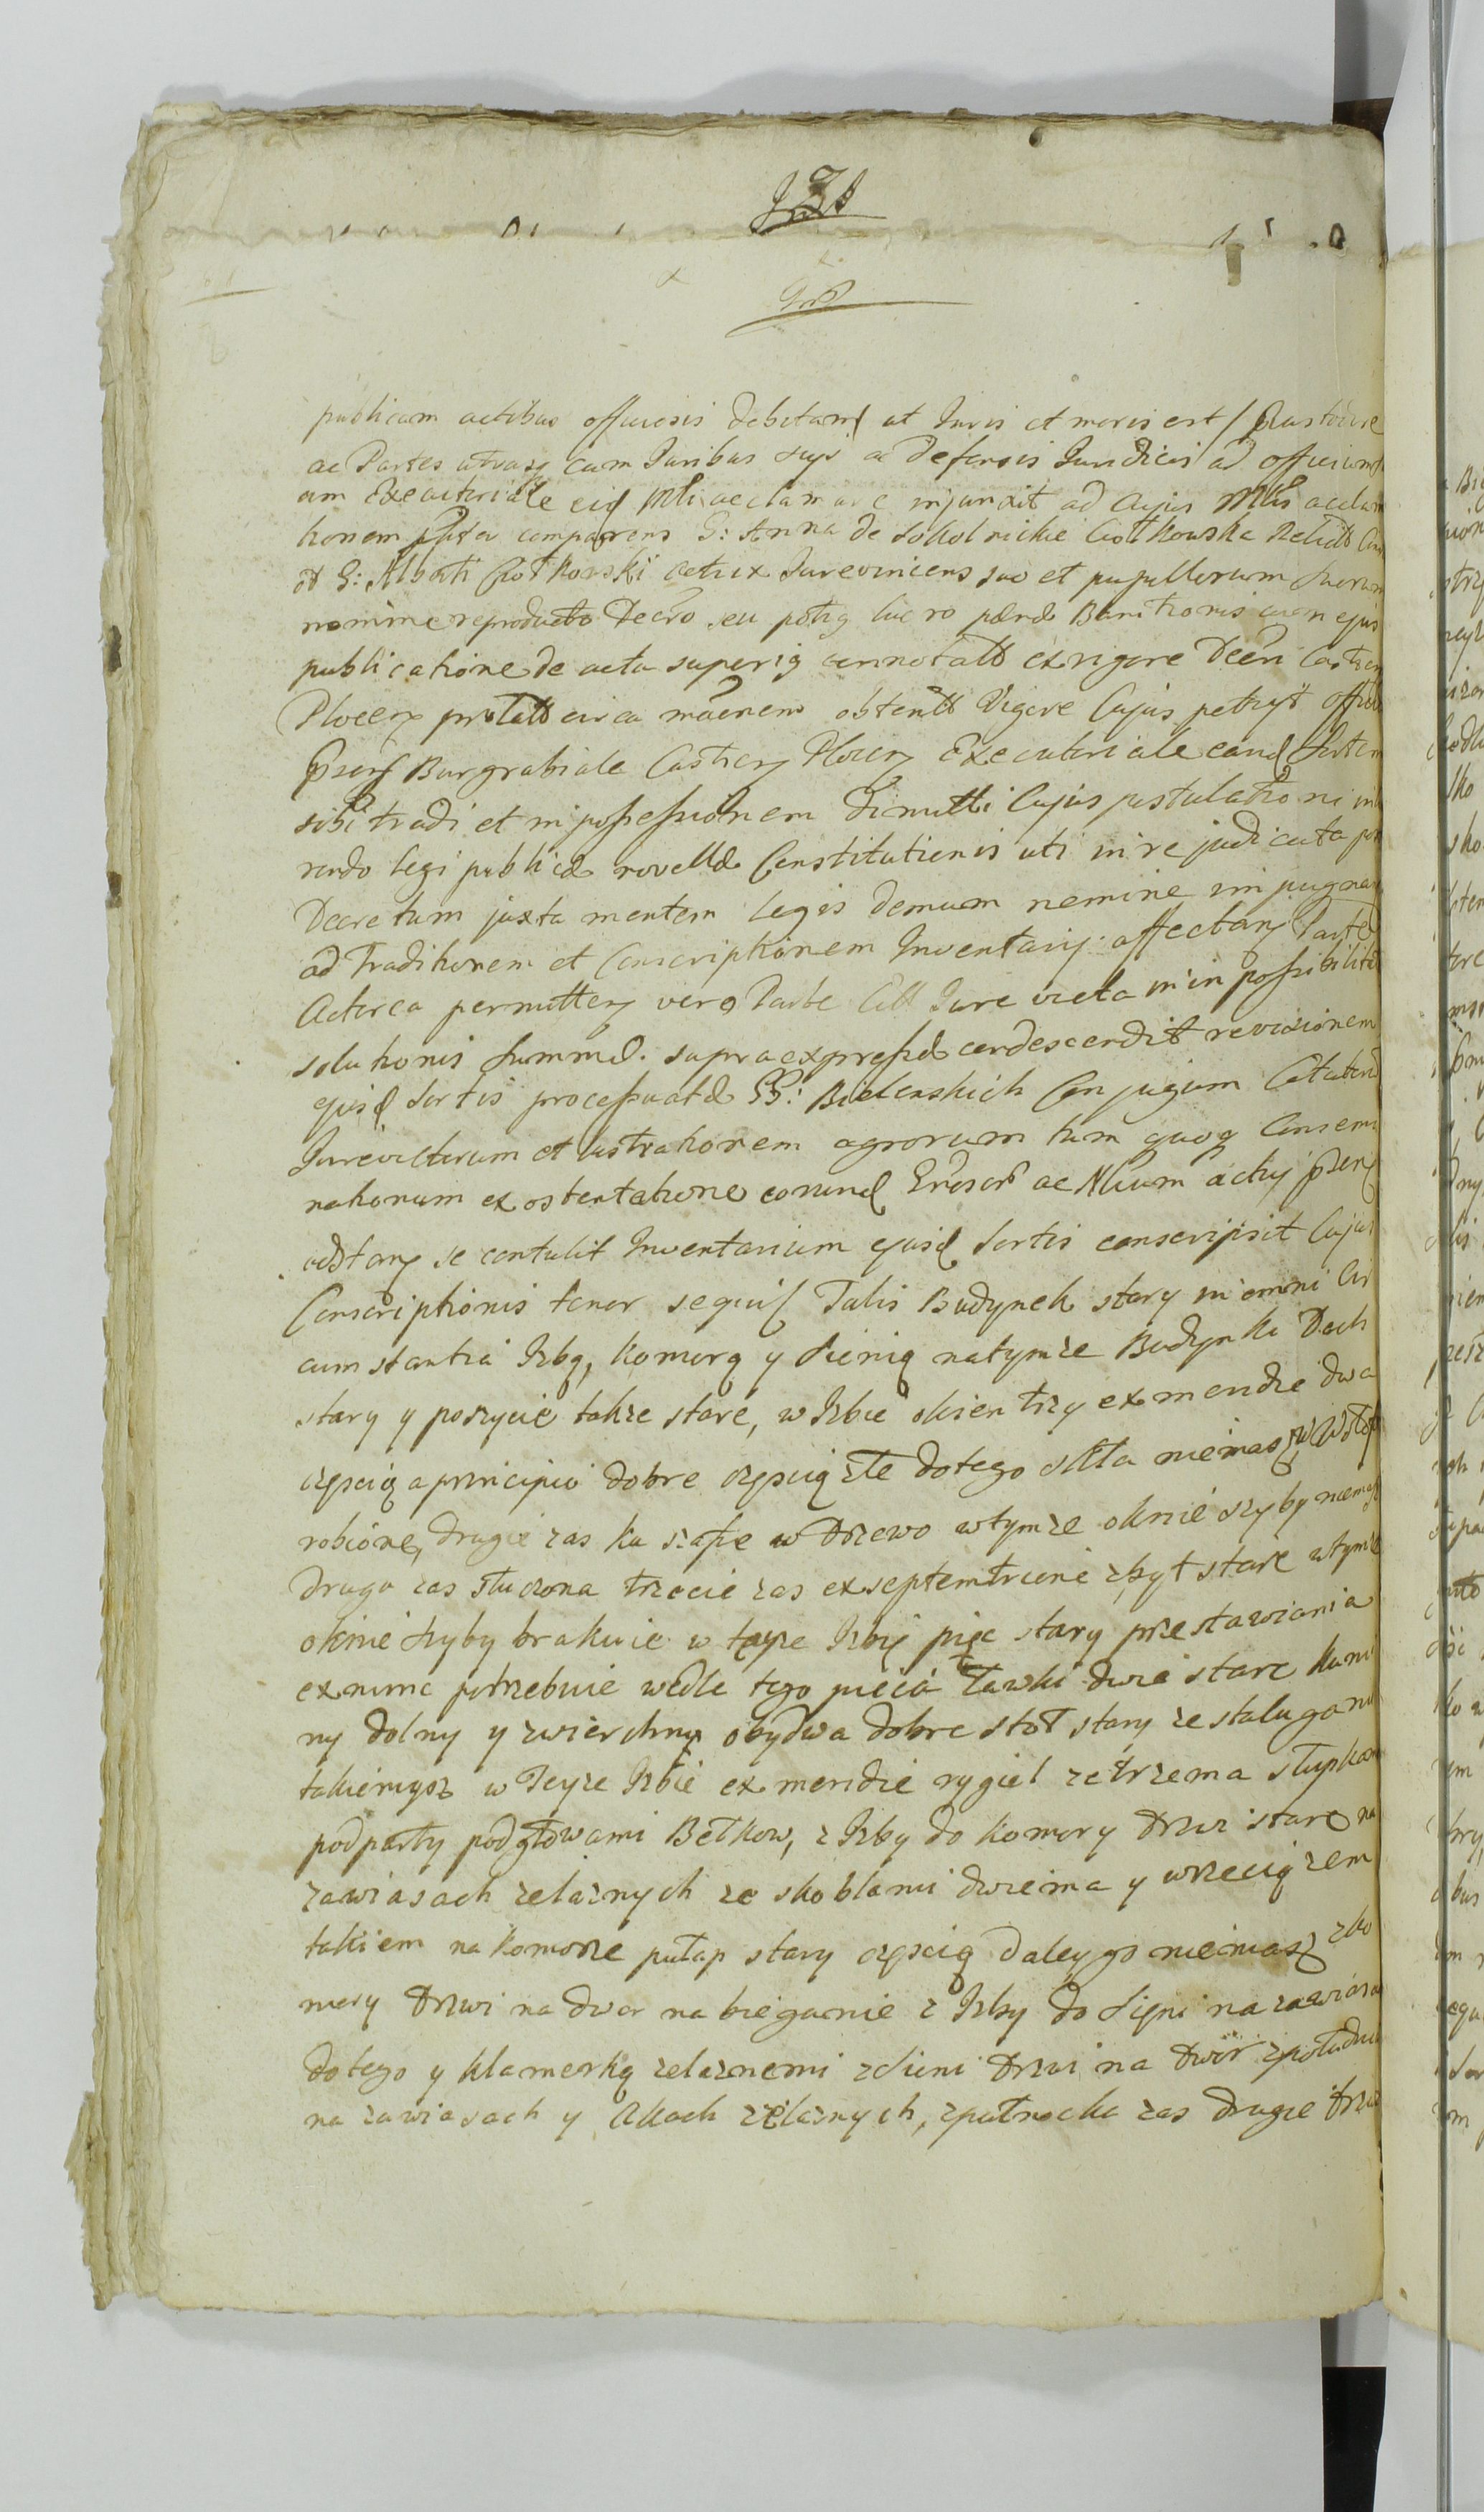 publicam actibus officiosis debitam ut Juris et moris est / praestolare
ac Partes utrasq cum Juribus suis ac defensis Juridicis ad officium
um Executoriale eid Mli acclamare injunxit ad Cujus Mlis acclama
tionem ppta comparens G: Anna de Sokolnickie Ciołkowska Relicta
G: Alberti Ciołkowski actrix Jurevincens suo et pupillorum suorum
nomine reproducto Decro seu potiq lucro paenae Bannitionis cum ejus
publicatione de acta superiq annotatto ex rigore Decri Castren
Plocen prolatto circa maenem obtentto Vigore Cujus petiyt offiu
praesens Burgrabiale Castren Plocen Executoriale eand Sortem
sibi tradi et in possessionem dimitti Cujus postulationi inhae
rendo legi publicae novellae Constitutionis uti in re judicata post
Decretum juxta mentem legis demum nemine impugnan
ad Traditionem et Conscriptionem Inventarij affectan Parte
Actorea permitten vero Parte Citt Jure victa in impossibilita
solutionis Summae supraexpressae condescendit revisionem
ejusd Sortis processuatae GG: Bielenskich Conjugum Citatorum
Jurevictorum et lustrationem agrorum tum quoq Consemi
nationum ex ostentatione eorund Grosor ac Nlium actuj praesen
adstan se contulit Inventarium ejusd Sortis conscripsit Cujus
Conscriptionis tenor sequit Talis Budynek stary in omni Cir
cumstantia Izbą, komorą y Sienią natymze Budynku Dach
stary y poszycie takze stare, w Izbie okien trzy ex meridie dwa
częscią a principio dobre częscią złe dotego szkła niemasz, w
robione, drugie zas ku szafie w drzewo wtymze oknie szyby niemasz
druga zas stłuczona trzecie zas ex septemtrione zbyt stare wtymze
oknie szyby brakuie w teyze Izbie piec stary przestawiania
ex nunc potrzebuie wedle tego pieca Ławki dwie stare komi
ny dolny y zwierchny obydwa dobre stoł stary ze stalugami
takiemysz w Teyze Izbie ex meridie rygiel ze trzema słupkami
podparty podgłowami Belkow, z Izby do komory drzwi stare na
zawiasach zelaznych ze skoblami dwiema y wrzeciązem
takiem na komorze pułap stary częscią daley go niemasz zko
mory drzwi na dwor na bieganie z Izby do Sięni na zawiasa
dotego y klamerką zelaznemi zSieni drzwi na Dwor zpołudnia
na zawiasach y hakach zelaznych, zpułnocka zas drugie drzwi